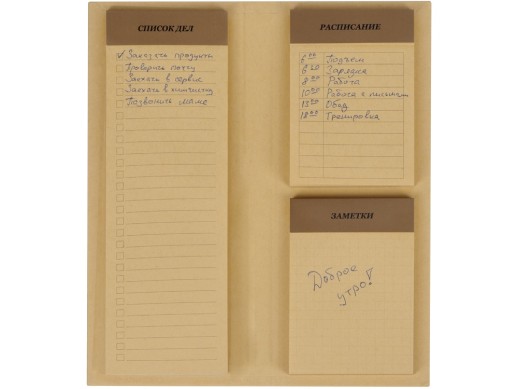 СПИСОК ДЕЛ
Заказать продукты
Проверить почту
Заехать в сервис
Заехать в химчистку
Позвонить маме
РАСПИСАНИЕ
6 00 Подъем
6 30 Зарядка
8 00 Работа
10 00 Работа с
13 00 Обед
18 00 Тренировка
ЗАМЕТКИ
Доброе
утро!